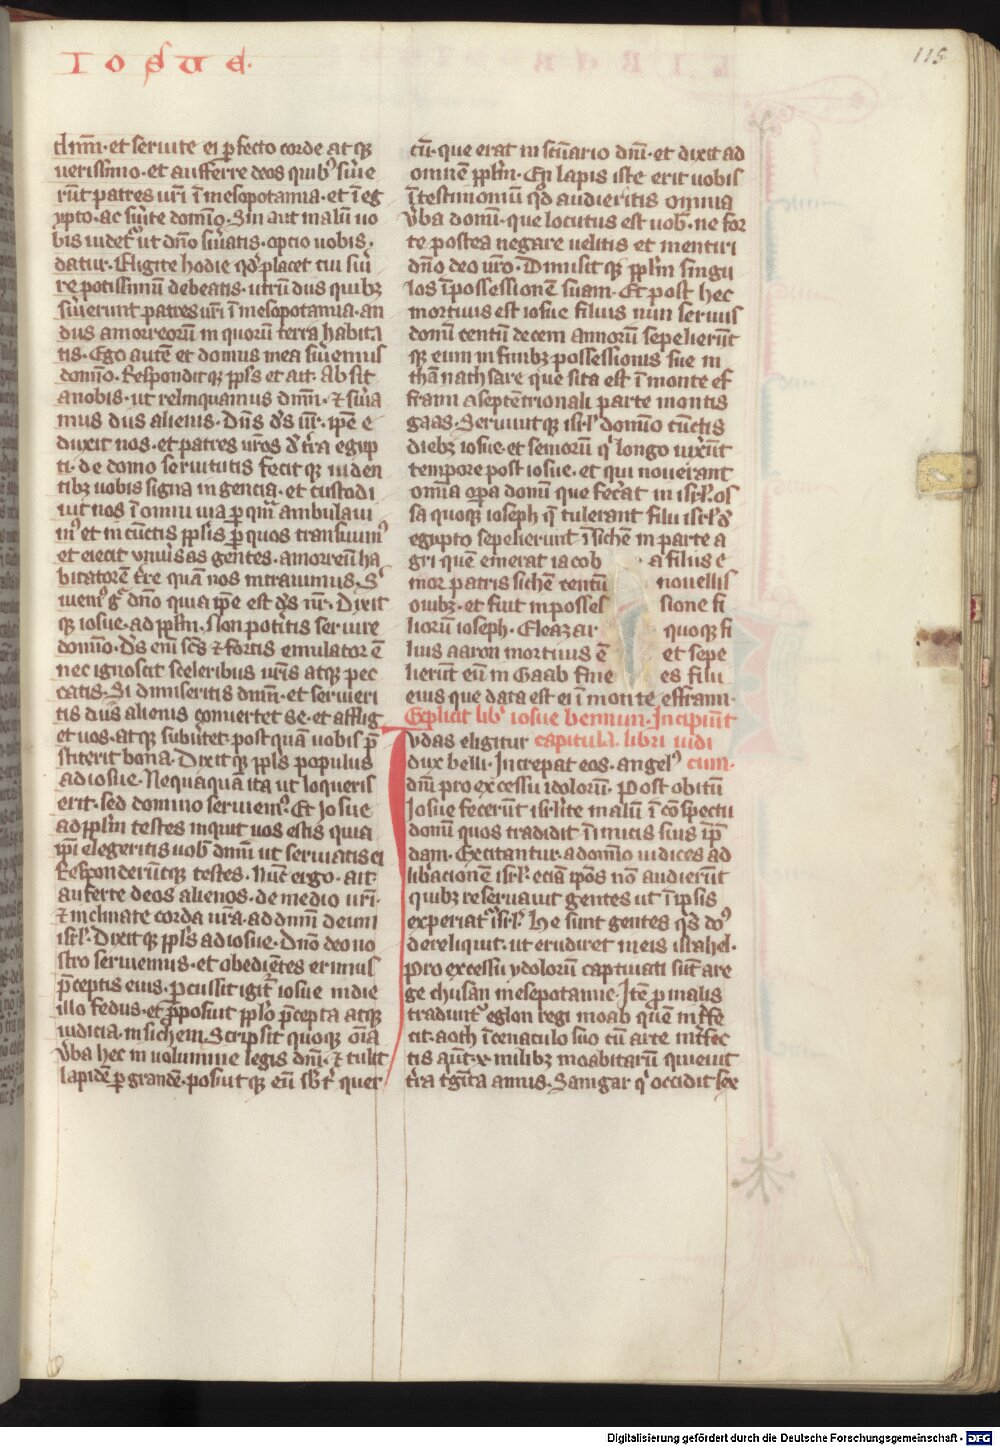 IOSUE.
115
dn̄m · et seruite ei ꝑfecto corde atqꝫ
uerissimo · et aufferre deos quibꝰ ẜuie
rūt patres ur̄i ī mesopotamia · et ī eg
ypto · ac ẜuite domīo · Sin aut malū uo
bis uidet̄ ut dn̄o ẜuiatis · optio uobis ·
datur · Eligite hodie qd̓ placet cui ẜui
re potissimū debeatis · utrū dus quibꝫ
ẜuierunt patres ur̄i ī mesopotamia · an
dus amorreorū in quorū terra habita
tis · Ego autē et domus mea ẜuiemus
domīo · Respondit qꝫ ppl̄s et ait · Absit
a nobis · ut relinquamus dn̄m · ⁊ ẜuia
mus dus alienis · Dn̄s ds̄ nr̄ · ip̄e e
duxit nos · et patres nr̄os d̓ t̓ra egyp
ti · de domo seruitutis fecit qꝫ uiden
tibꝫ uobis signa ingencia · et custodi
uit nos ī omni uia ꝑ qm̄ ambulaui
mꝰ et in cūctis ppl̄is ꝑ quos transiuimꝰ
et eiecit vniuersas gentes · amorreū ha
bitatorē t̓re quā nos intrauimus · S̓
uiemꝰ g̓ dn̄o quia ip̄e est ds̄ nr̄ · Dixit
qꝫ iosue · ad ppl̄m · Non potitis seruire
domīo · Ds̄ enī scs̄ ⁊ fortis emulator ē
nec ignoscit sceleribus ur̄is atqꝫ pec
catis · Si dimiseritis dn̄m · et serueri
tis dus alienis conuertet se · et afflig
et uos · atqꝫ subūtet · postquā uobis p̄
stiterit bona · Dixit qꝫ ppl̄s populus
ad iosue · Nequaquā ita ut loqueris
erit · sed domino seruiemꝰ · Et Iosue
ad ppl̄m testes inquit uos estis quia
ip̄i elegeritis uob̄ dn̄m ut seruiatis ei
Responderūtqꝫ testes · Nūc ergo · ait ·
auferte deos alienos · de medio ur̄i ·
⁊ inclinate corda ur̄a · ad dn̄m deum
isr̄l · Dixit qꝫ ppl̄s ad iosue · Dn̄o deo no
stro seruiemus · et obediētes erimus
p̄ceptis eius · ꝑcussit igit̄ iosue in die
illo fedus · et p̄posuit ppl̄o p̄cepta atqꝫ
iudicia · in sichem · Scripsit quoqꝫ oīa
v̓ba hec in uolumine legis dn̄i · ⁊ tulit
lapidē ꝑ grandē · posuit qꝫ eū sb̄t̓ quer
cū · que erat in sc̄uario dn̄i · et dixit ad
omnē ppl̄m · En lapis iste erit uobis
ī testimoniū qd̓ audieritis omnia
v̓ba domī · que locutus est uob̄ · ne for
te postea negare uelitis et mentiri
dn̄o deo ur̄o · Dimisit qꝫ ppl̄m singu
los ī possessionē suam · Et post hec
mortuus est iosue filius nun seruus
domī centū decem annorū sepelierūt
qꝫ eum in finibꝫ possessionis sue in
thānath sare que sita est ī monte ef
fraim a septētrionali parte montis
gaas · Seruiuit qꝫ isr̄l domīo cūctis
diebꝫ iosue · et seniorū q̓ longo uixūt
tempore post iosue · et qui nouerant
omīa oꝑa domī que fec̓at in isr̄l · os
sa quoqꝫ ioseph q̄ tulerant filii isr̄l d̓
egypto sepelierunt ī sichē in parte a
gri quē emerat iacob a filiis e
mor patris sichē centū nouellis
ouibꝫ · et fuit in posses sione fi
liorū ioseph · Eleazar quoqꝫ fi
lius aaron mortuus ē et sepe
lierūt eū in Gaab fine es filii
eius que data est ei ī monte effraim ·
Explicit lib̓ iosue bennun · Incipiūt
capitula · libri iudi
cum ·
Iudas eligitur
dux belli · Increpat eos · angelꝰ
dn̄i pro excessu idolorū · Post obitū
Iosue fecerūt isr̄lite malū ī cōspectu
domī quos tradidit ī imicis suis ip̄
dam · Excitantur · a domīo iudices ad
lib̓acionē isr̄l · ecia ip̄os nō audierūt
quibꝫ reseruauit gentes ut ī ip̄sis
experiat̓ isr̄l · He sunt gentes q̓s do̓
dereliquit · ut erudiret in eis israhel ·
Pro excessu ydolorū captiuati sūt a re
ge chusan mesepotamie · Itē ꝑ malis
tradunt̓ eglon regi moab quē īt̓fe
cit · aoth ī cenaculo suo cū arte īt̓fec
tis aūt · x · milibꝫ moabitarū quieuit
t̓ra t̓gīta annis · Samgar q̓ occidit sex
Digitalisierung gefördert durch die Deutsche Forschungsgemeinschaft - DFG